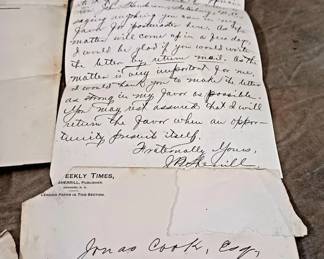 saying anything you can in my
favor for postmaster here. As the
matter will come up in a few days
I would be glad if you would write
the letter by return mail. As this
matter is very important for me,
I would thank you to make the letter
as strong in my favor as possible.
You may rest assured that I will
return the favor when an oppor-
tunity presents itself.
Fraternally Yours,
EEKLY TIMES,
SHERRILL, PUBLISHER
LEADING PAPER IN THIS SECTION.
Jonas Cook, Esq,